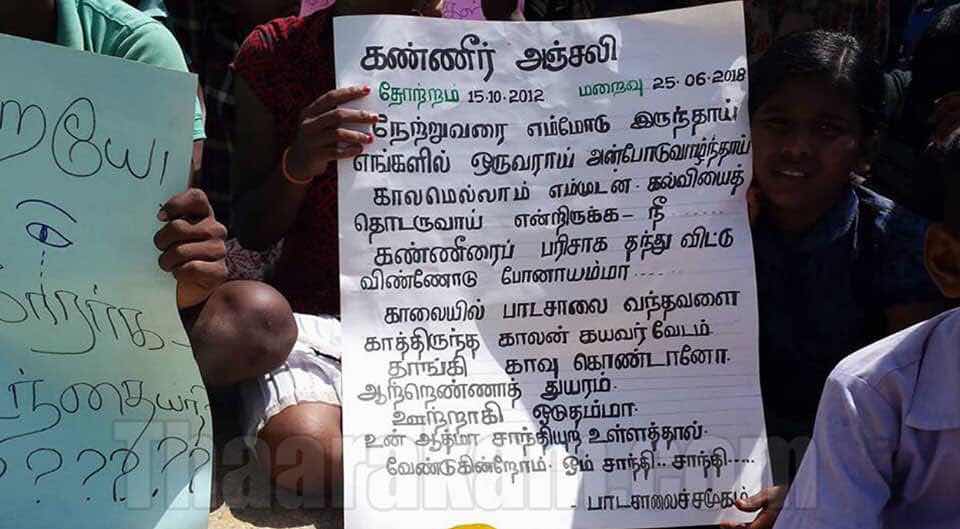 கண்ணீர் அஞ்சலி
தோற்றம் 15.10.2012 மறைவு 25.06.2018
நேற்றுவரை எம்மோடு இருந்தாய்
எங்களில் ஒருவராய் அன்போடுவாழ்ந்தாய்
காலமெல்லாம் எம்முடன் கல்வியைத்
தொடருவாய் என்றிருக்க - நீ ......
கண்ணீரைப் பரிசாக தந்து விட்டு
விண்ணோடு போனாயம்மா......
காலையில் பாடசாலை வந்தவளை
காத்திருந்த காலன் கயவர் வேடம்
தாங்கி காவு கொண்டானோ.
ஆற்றெண்ணாத் துயரம்.
ஊற்றாகி ஓடுதம்மா.
உன் ஆத்மா சாந்தியுற உள்ளத்தால்
வேண்டுகின்றோம். ஓம் சாந்தி.. சாந்தி.....
- பாடசாலைச்சமூகம்
????
Thaarakam.com